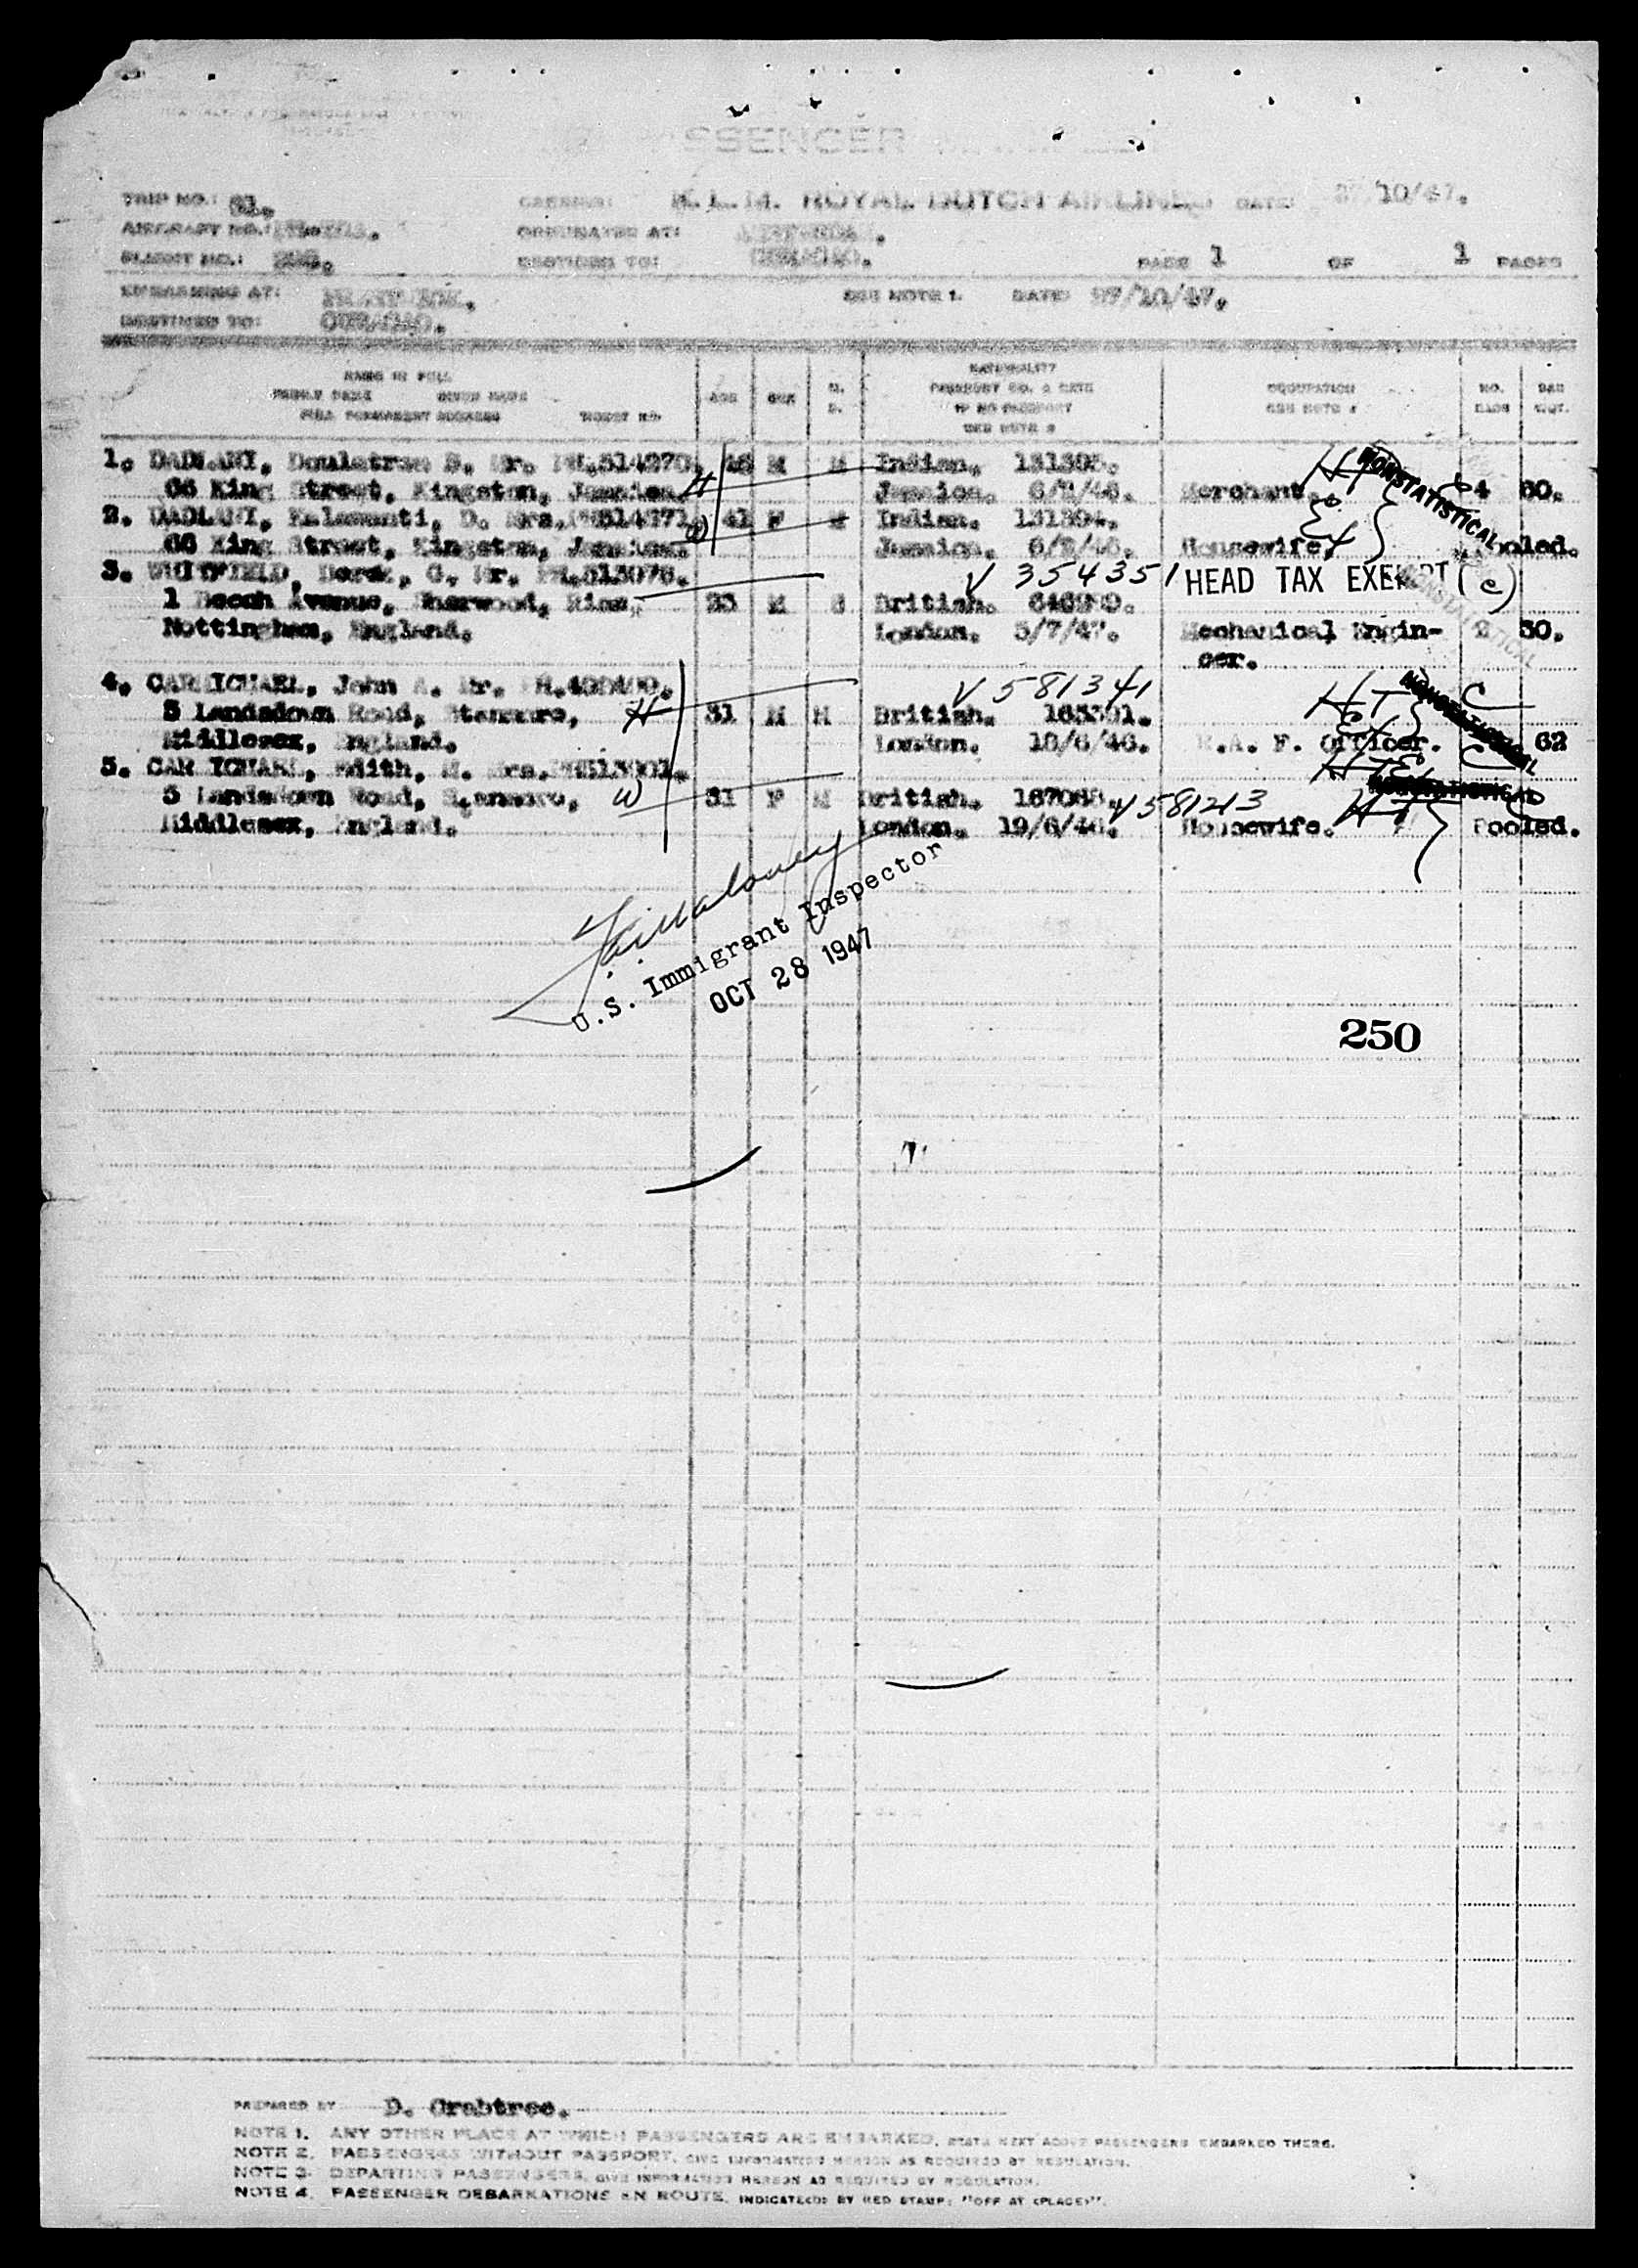 PASSENGER
TRIP NO.: 81. CARRIER: K.L.M. ROYAL DUTCH AIRLINES DATE: 10/47.
AIRCRAFT NO.: ORIGINATED AT:
FLIGHT NO.: DESTINED TO: CURACAO. PAGE 1 OF 1 PAGES
EMBARKING AT: PRESTWICK. SEE NOTE 1. DATE: 27/10/47.
DESTINED TO: CURACAO.
NAME IN FULL
FAMILY NAME GIVEN NAME
FULL PERMANENT ADDRESS TICKET NO.
AGE SEX M. S.
NATIONALITY
PASSPORT NO. & DATE
IF NO PASSPORT
SEE NOTE 2
OCCUPATION
SEE NOTE 4
NO. BAGS
BAG WGT.
1. DADLANI, Doulatram B. Mr. PH.514270. 46 M M Indian. 131395. HT
66 King Street, Kingston, Jamaica. H Jamaica. Merchant. 4 60.
NONSTATISTICAL
2. DADLANI, D. Mrs. PH514271. 41 F M Indian. 131394. Ex
66 King Street, Kingston, Jamaica. W Jamaica. Housewife. Pooled.
3. WHITFIELD, Derek, G. Mr. V 354351 HEAD TAX EXEMPT (c)
1 Beech Avenue, Sherwood, Rise, 23 M S British.
Nottingham, England. London. 5/7/47. Mechanical Engin- 2 30.
eer.
NONSTATISTICAL
4. CARMICHAEL, John A. Mr. V 581341 HT C
5 Landsdown Road, Stanmore, H 31 M M British. Ex
Middlesex, England. London. 18/6/46. R.A.F. Officer. 62
NONSTATISTICAL
5. CARMICHAEL, Edith, M. Mrs. HTE C
5 Landsdown Road, Stanmore, W 31 F M British. V 581213
NONSTATISTICAL
Middlesex, England. London. 19/6/46. Housewife. HT Pooled.
U.S. Immigrant Inspector
OCT 28 1947
250
PREPARED BY D. Crabtree.
NOTE 1. ANY OTHER PLACE AT WHICH PASSENGERS ARE EMBARKED, STATE NEXT ABOVE PASSENGERS EMBARKED THERE.
NOTE 2. PASSENGERS WITHOUT PASSPORT, GIVE INFORMATION HEREON AS REQUIRED BY REGULATION.
NOTE 3. DEPARTING PASSENGERS, GIVE INFORMATION HEREON AS REQUIRED BY REGULATION.
NOTE 4. PASSENGER DEBARKATIONS EN ROUTE, INDICATE(D) BY RED STAMP: "OFF AT (PLACE)".